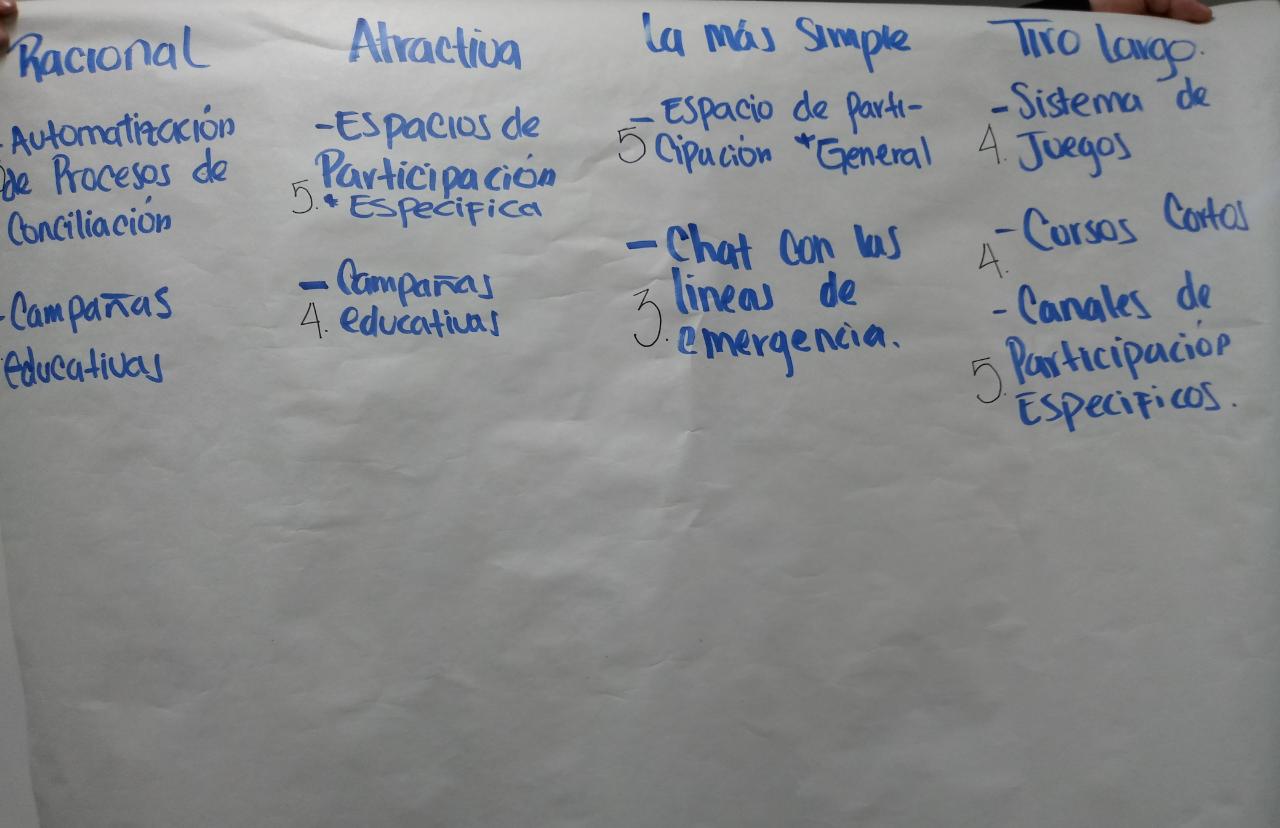 Racional
- Automatización
de Procesos de
Conciliación
- Campañas
educativas
Atractiva
- Espacios de
Participación
5. * Especifica
- Campañas
4. educativas
La más Simple
- Espacio de Parti-
5 Cipación *General
- Chat con las
3. líneas de
emergencia.
Tiro Largo.
- Sistema de
4. Juegos
- Cursos Cortos
4.
- Canales de
5. Participación
Especificos.